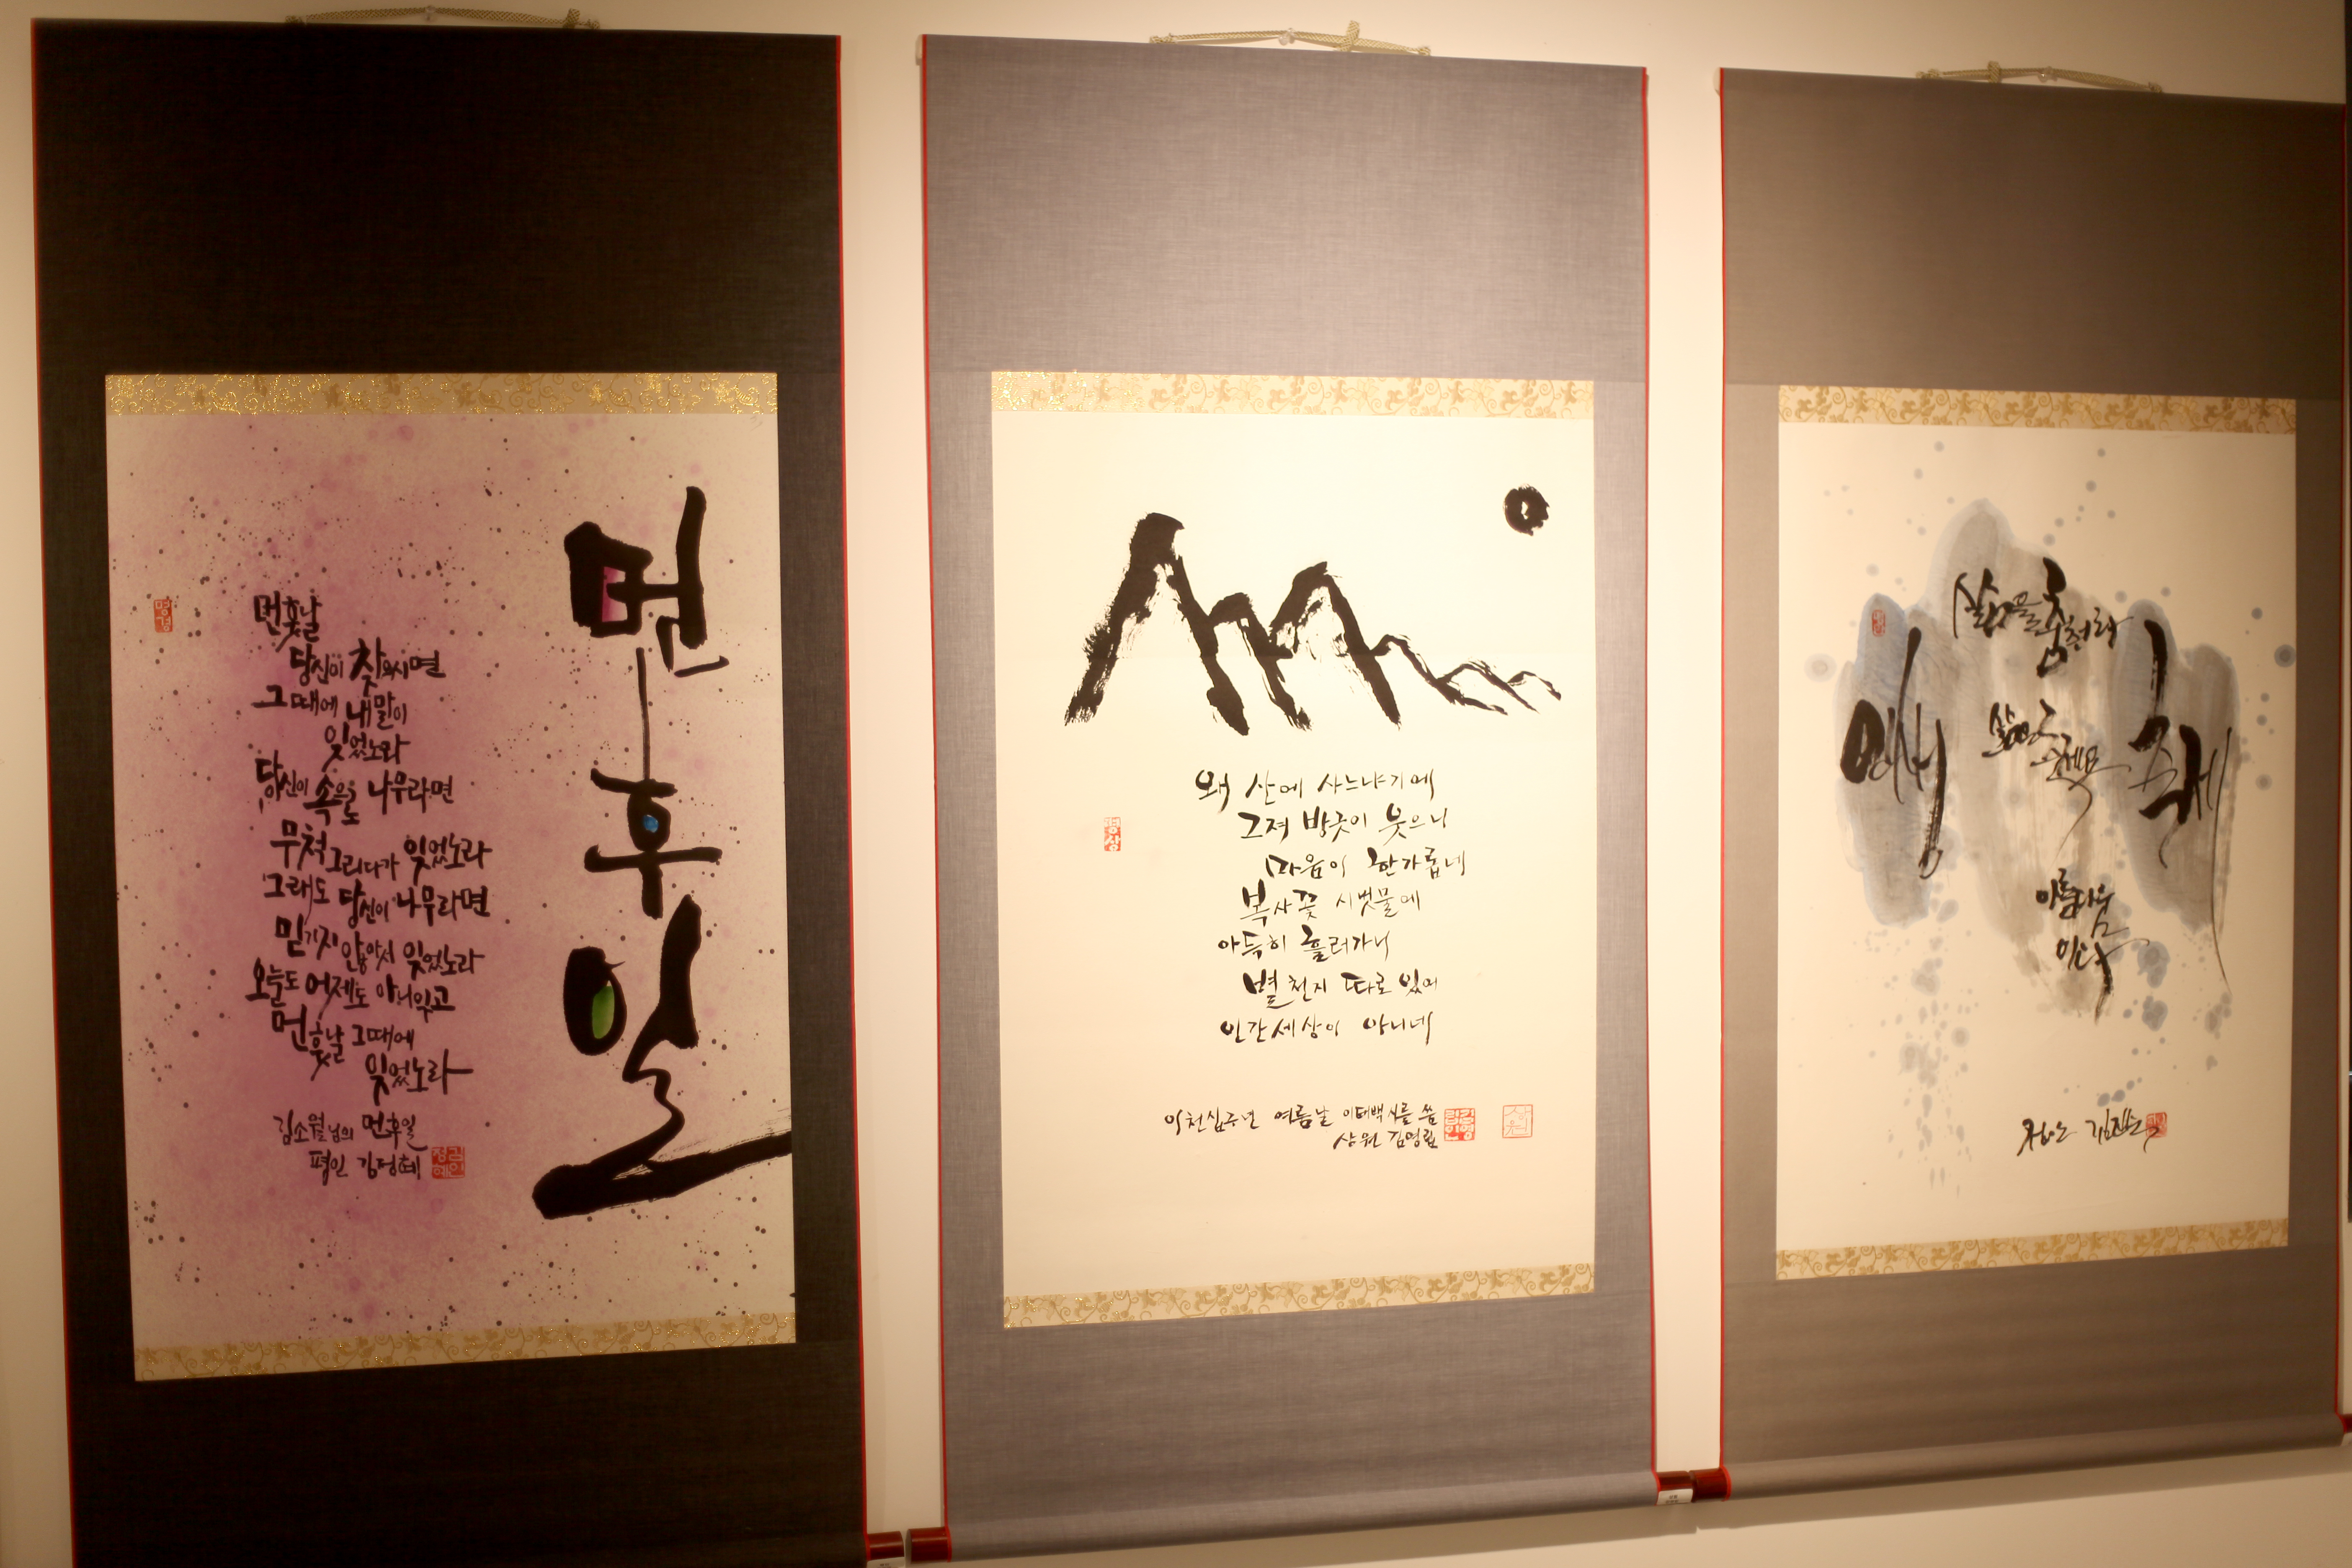 먼
후
일
먼 훗날
당신이 찾으시면
그때에 내 말이
잊었노라
당신이 속으로 나무라면
무척 그리다가 잊었노라
그래도 당신이 나무라면
믿기지 않아서 잊었노라
오늘도 어제도 아니잊고
먼 훗날 그때에
잊었노라
김소월님의 먼후일
평인 김정혜
왜 산에 사느냐기에
그저 방긋이 웃으니
마음이 한가롭네
복사꽃 시냇물에
아득히 흘러가니
별천지 따로 있어
인간세상이 아니네
이천십구년 여름날 이태백 시를 씀
상원 김영림
삶을 훔쳐라
아름다움
이다